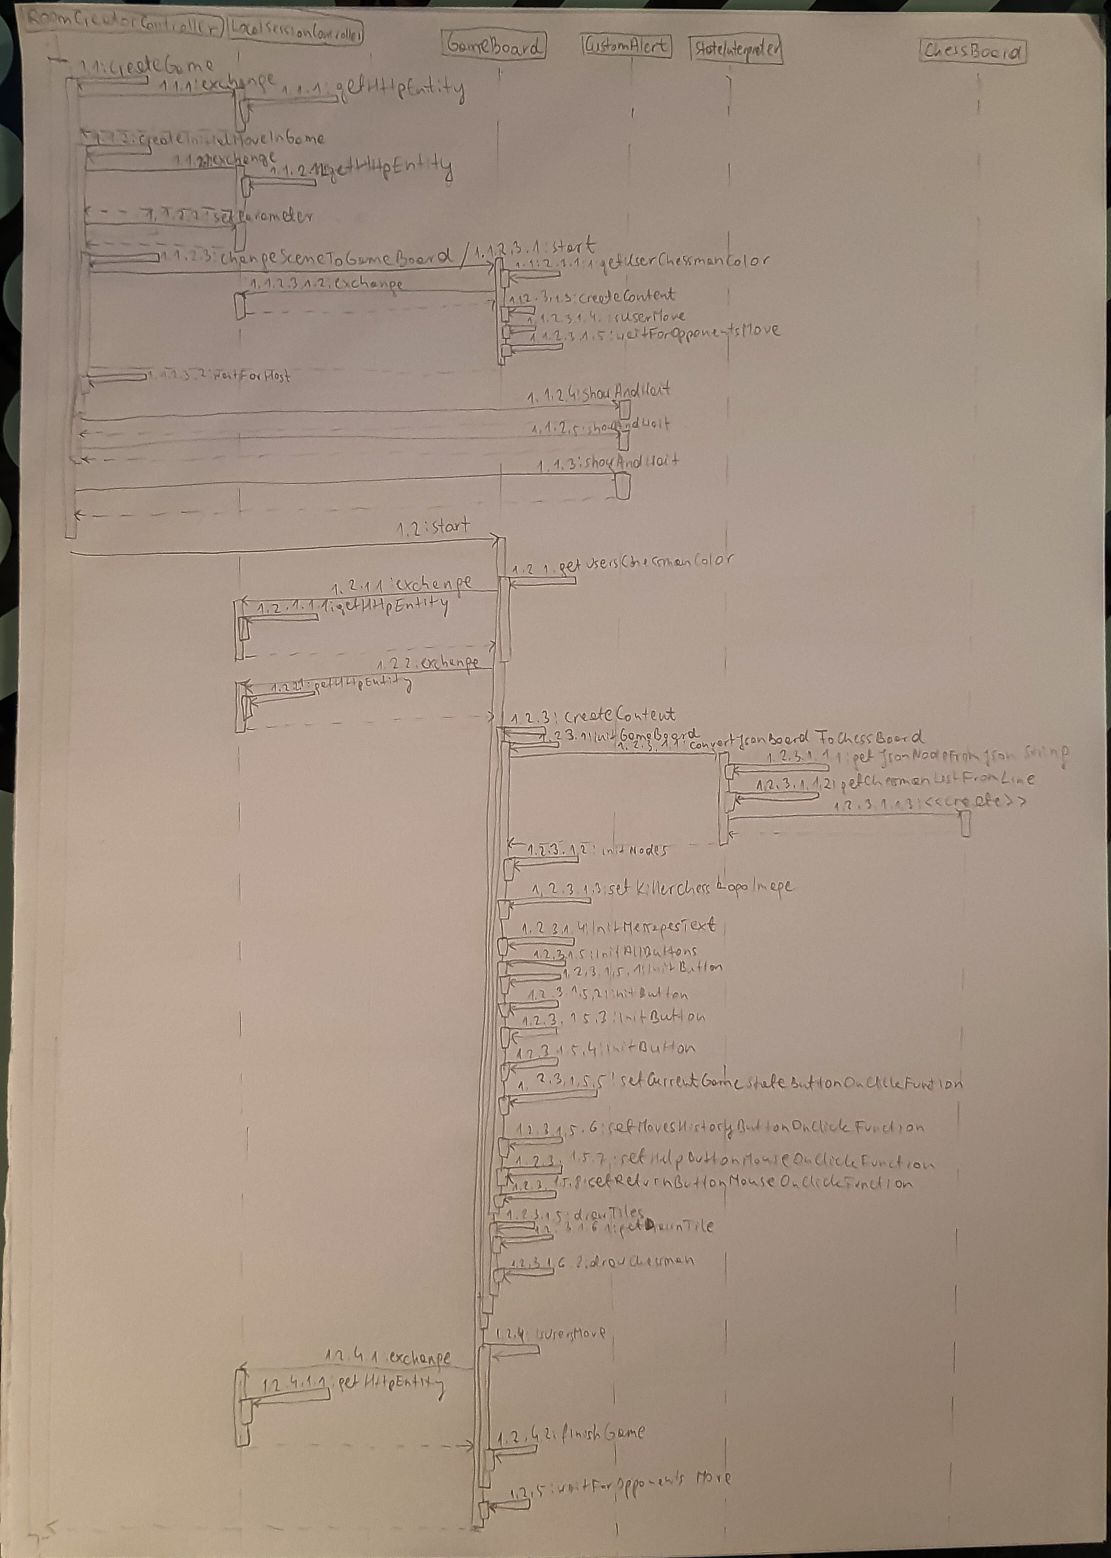 RoomCreatorController LocalSessionController GameBoard CustomAlert StateInterpreter ChessBoard
1.1:createGame
1.1.1:exchange 1.1.1.1:getHttpEntity
1.1.2:createInitialMoveInGame
exchange getHttpEntity
1.1.2.2:setParameter
1.1.2.3:changeSceneToGameBoard / 1.1.2.3.1:start
getUserChessmanColor
1.1.2.3.1.2:exchange
1.1.2.3.1.3:createContent
1.1.2.3.1.4:isUserMove
1.1.2.3.1.5:waitForOpponentsMove
1.1.2.3.2:waitForHost
1.1.2.4:showAndWait
1.1.2.5:showAndWait
1.1.3:showAndWait
1.2:start
1.2.1:getUsersChessmanColor
1.2.1.1:exchange
1.2.1.1.1:getHttpEntity
1.2.2:exchange
1.2.2.1:getHttpEntity
1.2.3:createContent
1.2.3.1:initGameBoard
1.2.3.1.1:convertJsonBoardToChessBoard
1.2.3.1.1.1:getJsonNodeFromJsonString
1.2.3.1.1.2:getChessmanListFromLine
1.2.3.1.1.3:<<create>>
1.2.3.1.2:initNodes
1.2.3.1.3:setKillerChessLogoImage
1.2.3.1.4:initMessagesText
1.2.3.1.5:initAllButtons
1.2.3.1.5.1:initButton
1.2.3.1.5.2:initButton
1.2.3.1.5.3:initButton
1.2.3.1.5.4:initButton
1.2.3.1.5.5:setCurrentGameStateButtonOnClickFuntion
1.2.3.1.5.6:setMovesHistoryButtonOnClickFunction
1.2.3.1.5.7:setHelpButtonMouseOnClickFunction
1.2.3.1.5.8:setReturnButtonMouseOnClickFunction
1.2.3.1.5:drawTiles
1.2.3.1.6.1:getDrawnTile
1.2.3.1.6.2:drawChessman
1.2.4:isUsersMove
1.2.4.1:exchange
1.2.4.1.1:getHttpEntity
1.2.4.2:finishGame
1.2.5:waitForOpponents Move